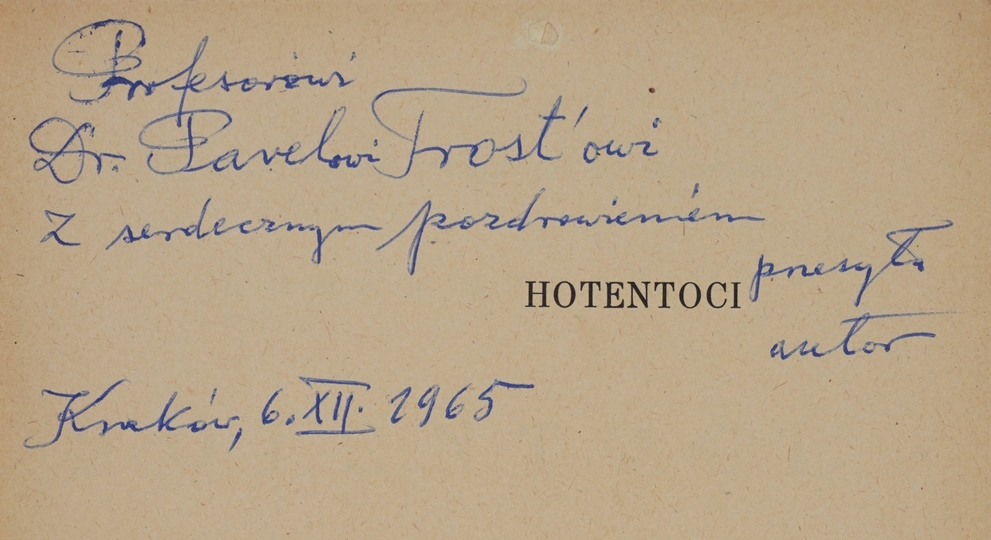 Profesorowi
Dr. Pavelowi Trost'owi
Z serdecznym pozdrowieniem
przesyła
HOTENTOCI
autor
Kraków, 6. XII. 1965